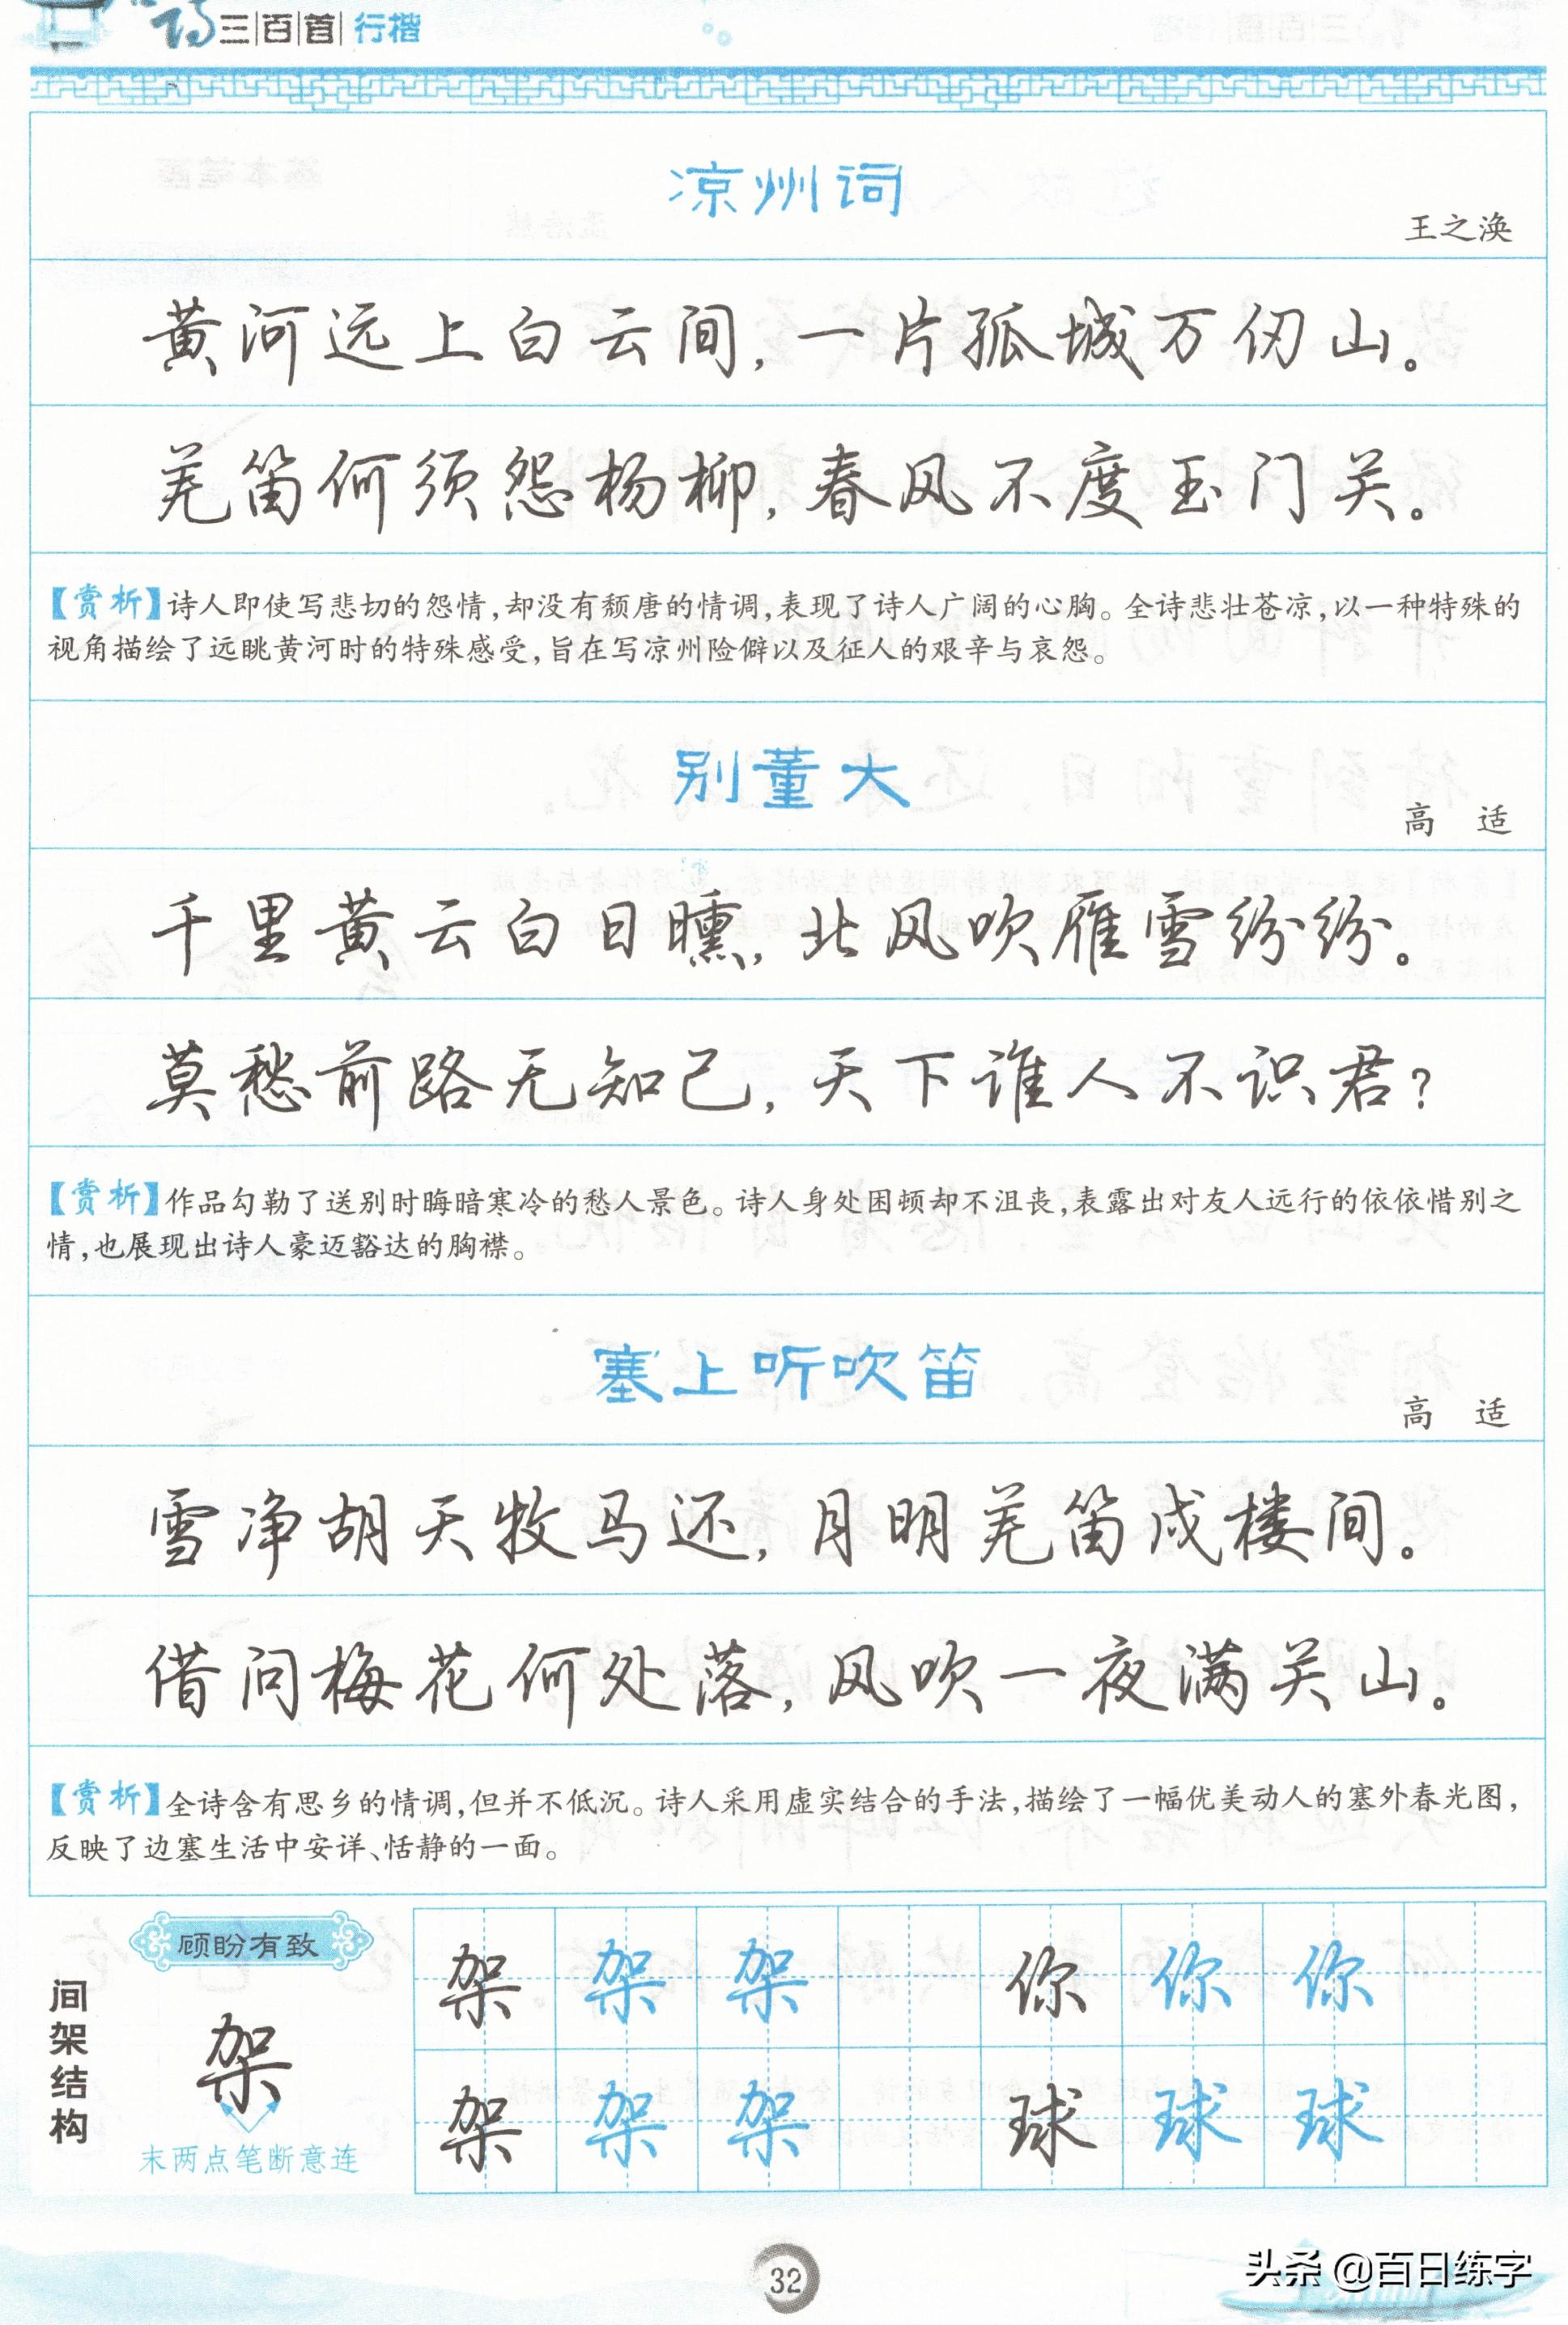 诗三百首 行楷
凉州词
王之涣
黄河远上白云间，一片孤城万仞山。
羌笛何须怨杨柳，春风不度玉门关。
【赏析】诗人即使写悲切的怨情，却没有颓唐的情调，表现了诗人广阔的心胸。全诗悲壮苍凉，以一种特殊的
视角描绘了远眺黄河时的特殊感受，旨在写凉州险僻以及征人的艰辛与哀怨。
别董大
高 适
千里黄云白日曛，北风吹雁雪纷纷。
莫愁前路无知己，天下谁人不识君？
【赏析】作品勾勒了送别时晦暗寒冷的愁人景色。诗人身处困顿却不沮丧，表露出对友人远行的依依惜别之
情，也展现出诗人豪迈豁达的胸襟。
塞上听吹笛
高 适
雪净胡天牧马还，月明羌笛戍楼间。
借问梅花何处落，风吹一夜满关山。
【赏析】全诗含有思乡的情调，但并不低沉。诗人采用虚实结合的手法，描绘了一幅优美动人的塞外春光图，
反映了边塞生活中安详、恬静的一面。
间架结构
顾盼有致
架
末两点笔断意连
架 架 架 你 你 你
架 架 架 球 球 球
32
头条 @百日练字